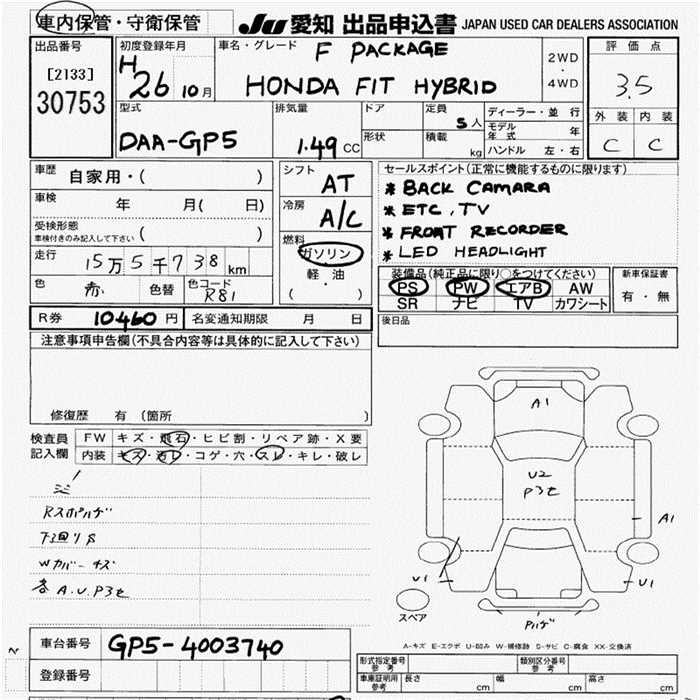 車内保管・守衛保管
JU 愛知 出品申込書 JAPAN USED CAR DEALERS ASSOCIATION
出品番号
[2133]
30753
初度登録年月
H 26 10月
車名・グレード F PACKAGE
HONDA FIT HYBRID
2WD
・
4WD
評価点
3.5
外装 内装
C C
型式
DAA-GP5
排気量
1.49 CC
ドア
形状
定員 5人
積載 kg
ディーラー・並行
モデル年式 年
ハンドル 左・右
車歴 自家用・( )
車検 年 月( 日)
受検形態
車検付きのみ記入して下さい ( )
走行 15万5千738km
色 赤 色替 色コード R81
シフト AT
冷房 A/C
燃料
ガソリン
軽油
( )
セールスポイント(正常に機能するものに限ります)
* BACK CAMARA
* ETC, TV
* FRONT RECORDER
* LED HEADLIGHT
装備品(純正品に限り○をつけてください)
PS PW エアB AW
SR ナビ TV カワシート
新車保証書
有・無
R券 10460円 名変通知期限 月 日
後日品
注意事項申告欄(不具合内容等は具体的に記入して下さい)
修復歴 有(箇所 )
検査員
記入欄
FW キズ・飛石・ヒビ割・リペア跡・X要
内装 キズ・汚レ・コゲ・穴・スレ・キレ・破レ
Rスポハゲ
下回りS
Wカバーキズ
各A.U.P3セ
A1
U2
P3セ
A1
U1
U1
Pハゲ
スペア
A-キズ E-エクボ U-凹み W-補修跡 S-サビ C-腐食 XX-交換済
車台番号 GP5-4003740
登録番号
型式指定番号
参考
類別区分番号
参考
車庫証明用
参考
長さ cm 幅 cm 高さ cm